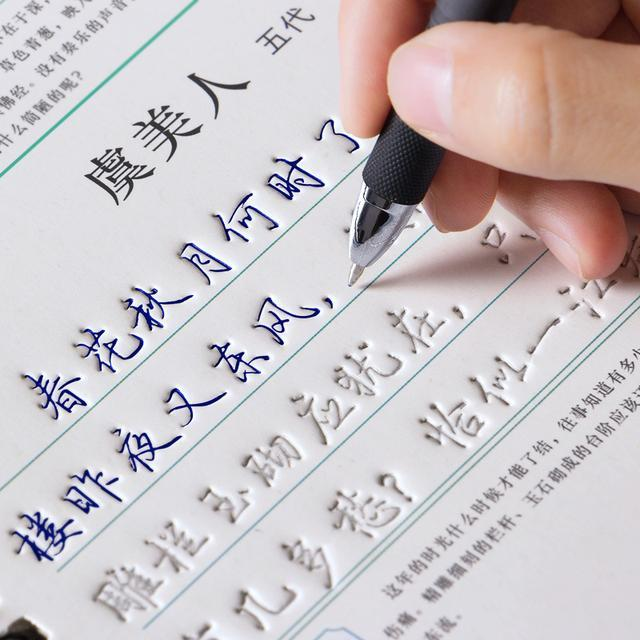 草色青葱，映
佛经。没有奏乐的声音
什么简陋的呢？
虞美人 五代
春花秋月何时了
楼昨夜又东风，
雕栏玉砌应犹在，只
几多愁？恰似一江
这年的时光什么时候才能了结，往事知道有多少
伤痛。精雕细刻的栏杆、玉石砌成的台阶应该
东流。